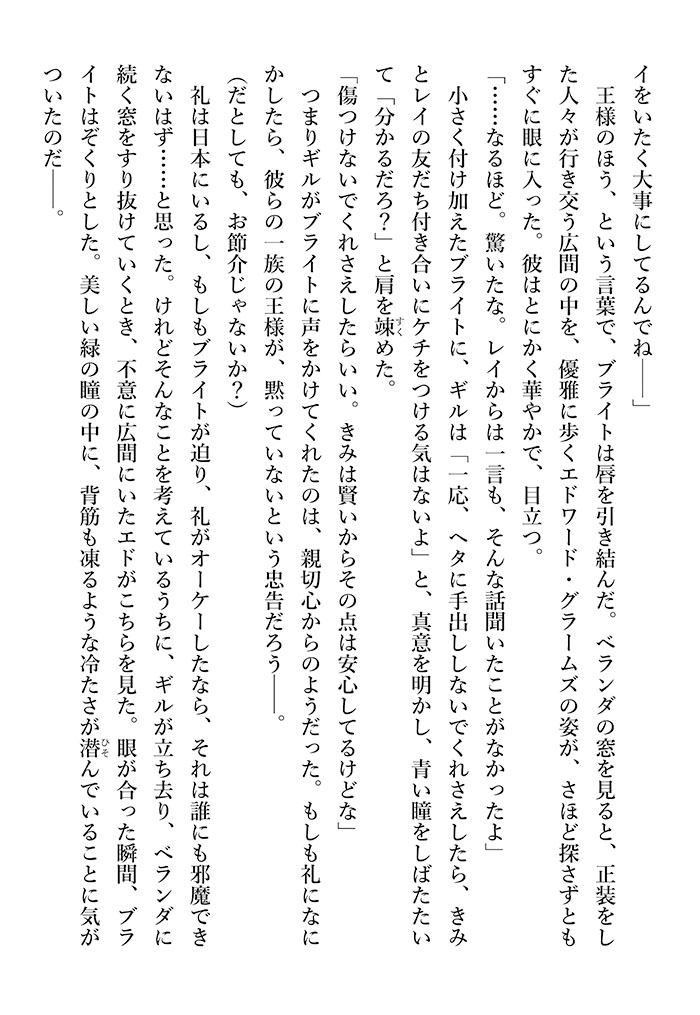 イをいたく大事にしてるんでね――」
　王様のほう、という言葉で、ブライトは唇を引き結んだ。ベランダの窓を見ると、正装をし
た人々が行き交う広間の中を、優雅に歩くエドワード・グラームズの姿が、さほど探さずとも
すぐに眼に入った。彼はとにかく華やかで、目立つ。
「……なるほど。驚いたな。レイからは一言も、そんな話聞いたことがなかったよ」
　小さく付け加えたブライトに、ギルは「一応、ヘタに手出ししないでくれさえしたら、きみ
とレイの友だち付き合いにケチをつける気はないよ」と、真意を明かし、青い瞳をしばたたい
て「分かるだろ？」と肩を竦すくめた。
「傷つけないでくれさえしたらいい。きみは賢いからその点は安心してるけどな」
　つまりギルがブライトに声をかけてくれたのは、親切心からのようだった。もしも礼になに
かしたら、彼らの一族の王様が、黙っていないという忠告だろう――。
（だとしても、お節介じゃないか？）
　礼は日本にいるし、もしもブライトが迫り、礼がオーケーしたなら、それは誰にも邪魔でき
ないはず……と思った。けれどそんなことを考えているうちに、ギルが立ち去り、ベランダに
続く窓をすり抜けていくとき、不意に広間にいたエドがこちらを見た。眼が合った瞬間、ブラ
イトはぞくりとした。美しい緑の瞳の中に、背筋も凍るような冷たさが潜ひそんでいることに気が
ついたのだ――。